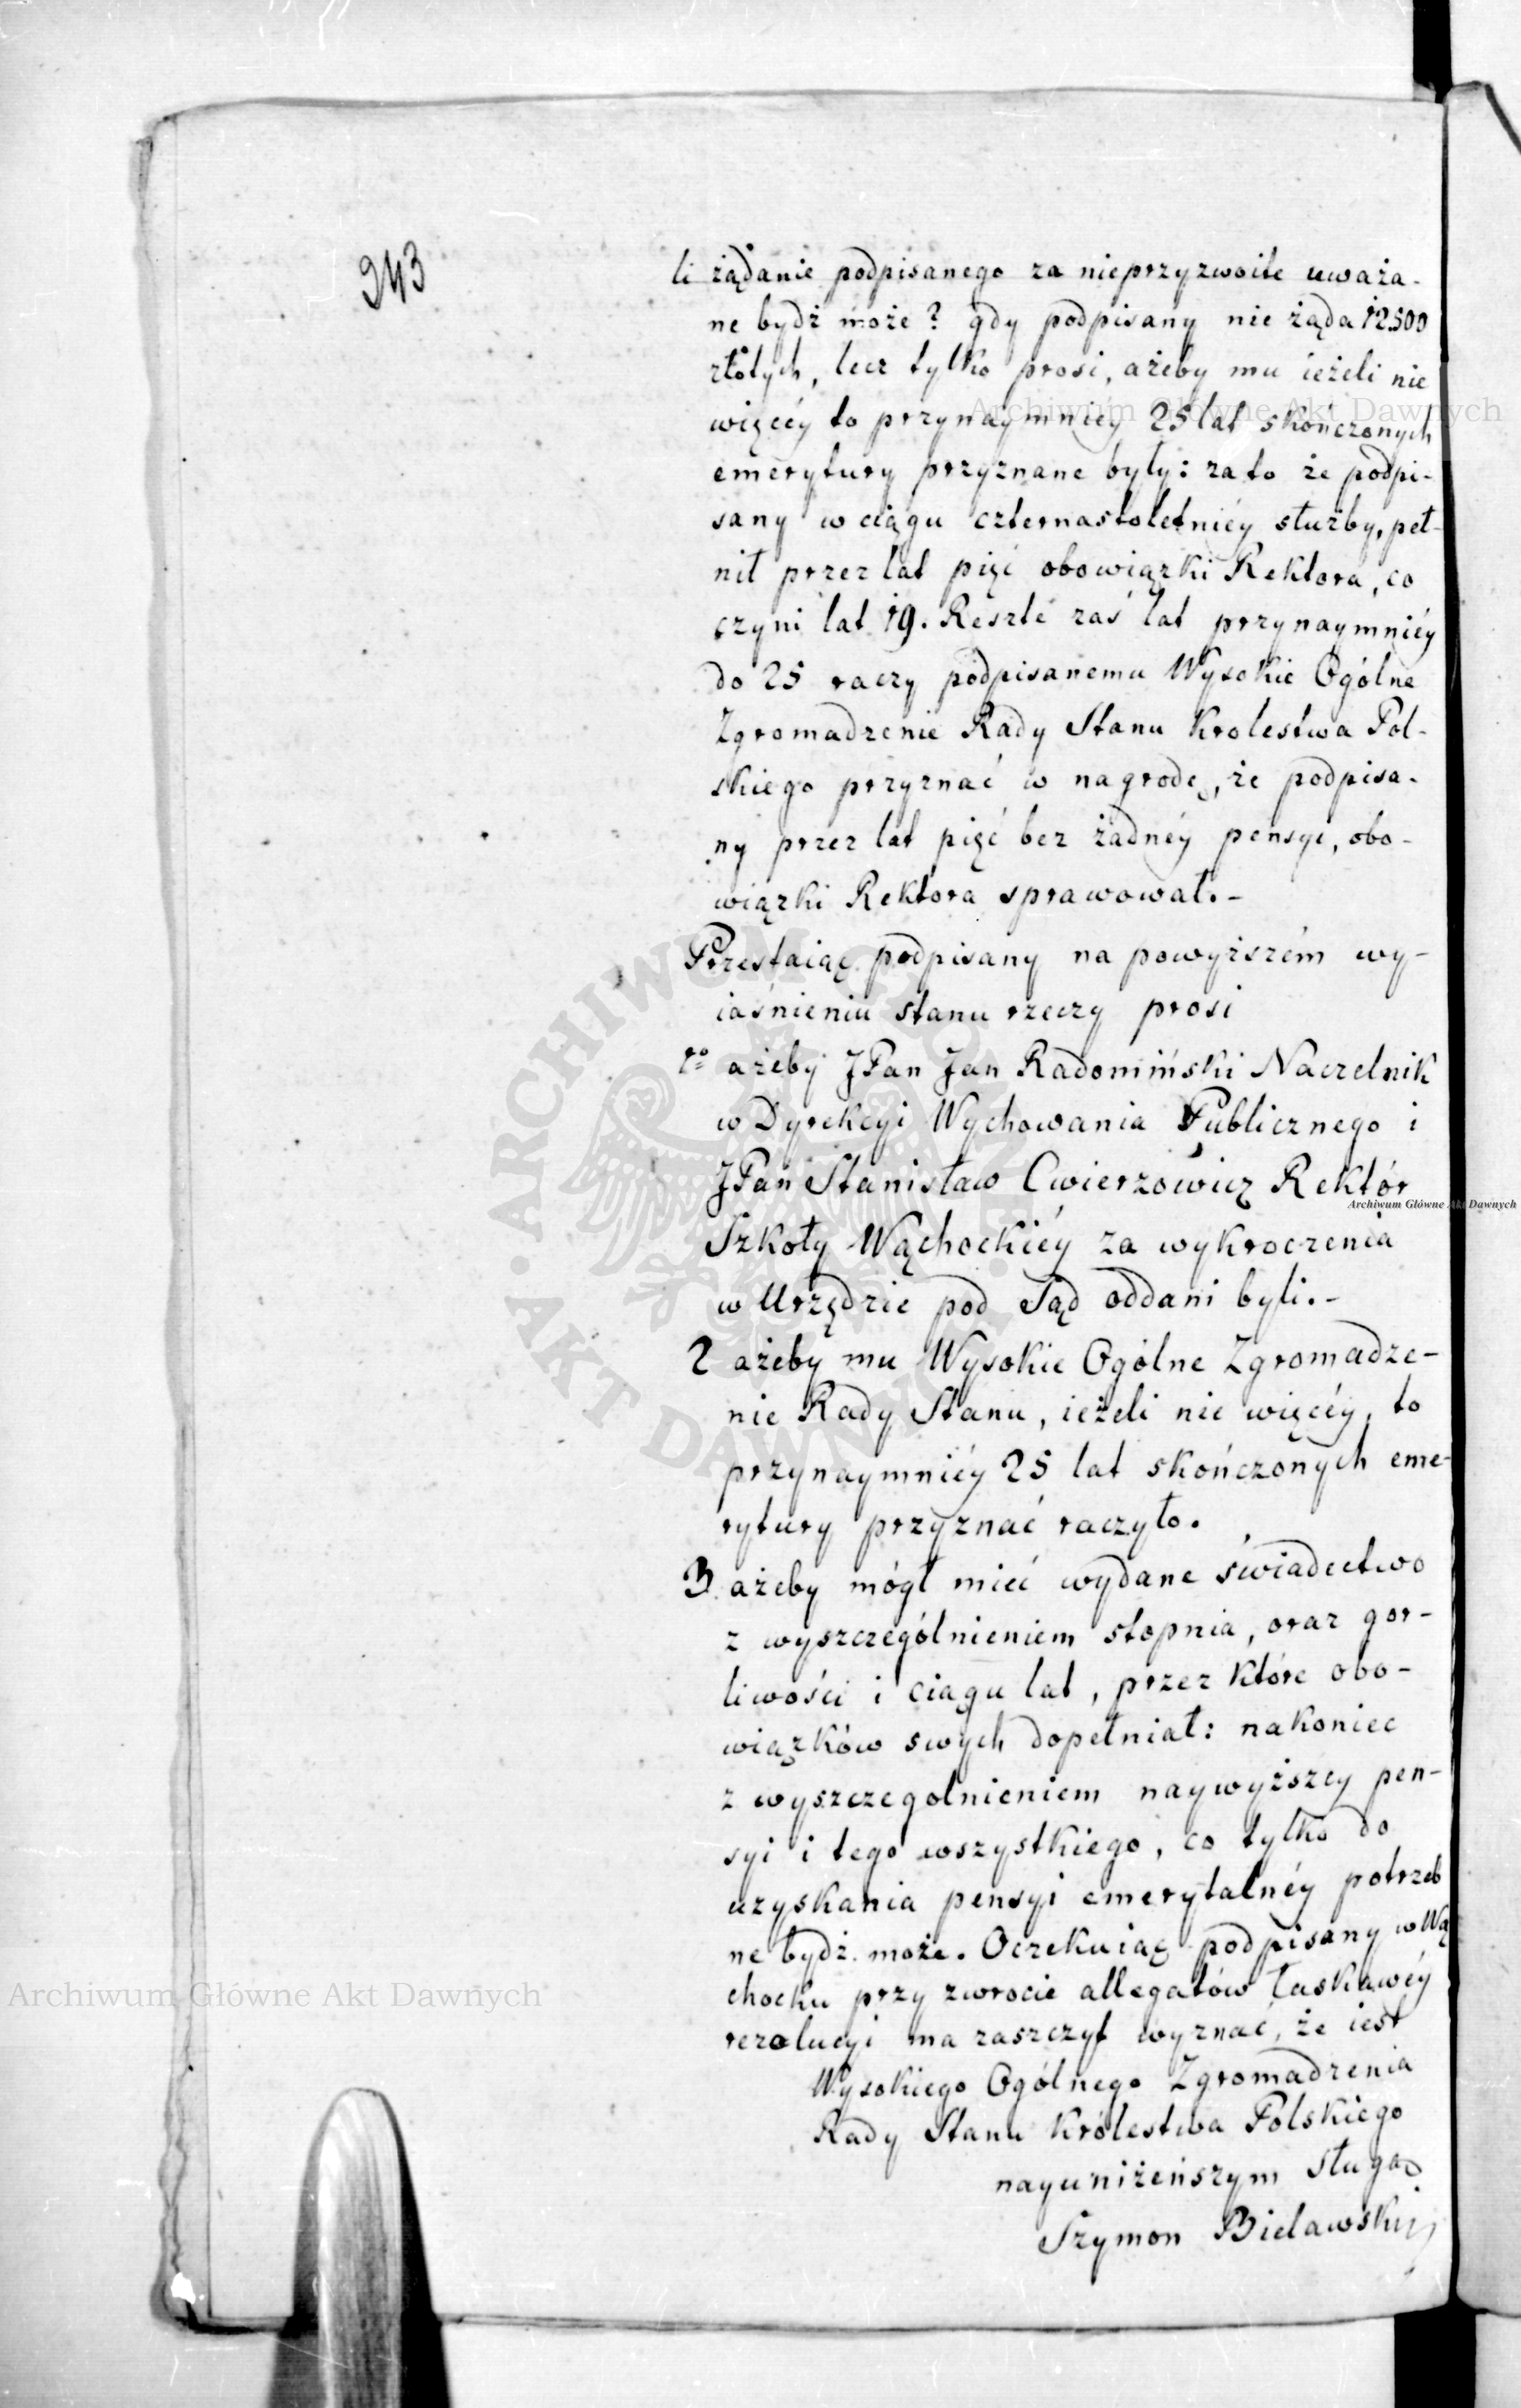 243
li żądanie podpisanego za nieprzyzwoite uważa-
ne bydż może? gdy podpisany nie żąda 12500
złotych, lecz tylko prosi, ażeby mu ieżeli nie
więcéy to przynaymniéy 25 lat skończonych
emerytury przyznane były: za to że podpi-
sany w ciągu czternastoletniéy służby, peł-
nił przez lat pięć obowiązki Rektora, co
czyni lat 19. Reszté zaś lat przynaymniéy
do 25 raczy podpisanemu Wysokie Ogólne
Zgromadzenie Rady Stanu Krolestwa Pol-
skiego przyznać w nagrodę, że podpisa-
ny przez lat pięć bez żadnéy pensyi, obo-
wiązki Rektora sprawował.-
Przestaiąc podpisany na powyższém wy-
iaśnieniu stanu rzeczy prosi
1o ażeby JPan Jan Radomiński Naczelnik
w Dyrekcyi Wychowania Publicznego i
JPan Stanisław Cwierzowicz Rektór
Szkoły Wąchockiéy za wykroczenia
w Urzędzie pod Sąd oddani byli.-
2 ażeby mu Wysokie Ogólne Zgromadze-
nie Rady Stanu, ieżeli nie więcéy, to
przynaymniéy 25 lat skończonych eme-
rytury przyznać raczyło.
3. ażeby mógł mieć wydane świadectwo
z wyszczególnieniem stopnia, oraz gor-
liwości i ciągu lat, przez które obo-
wiązków swych dopełniał: nakoniec
z wyszczegolnieniem naywyższey pen-
syi i tego wszystkiego, co tylko do
uzyskania pensyi emerytalnéy potrzeb
ne bydż może. Oczekuiąc podpisany w Wą
chocku przy zwrocie allegatów łaskawéy
rezolucyi ma zaszczyt wyznać, że iest
Wysokiego Ogólnego Zgromadzenia
Rady Stanu Królestwa Polskiego
nayuniżeńszym sługą
Szymon Bielawski
Archiwum Główne Akt Dawnych
Archiwum Główne Akt Dawnych
Archiwum Główne Akt Dawnych
ARCHIWUM GŁÓWNE
AKT DAWNYCH